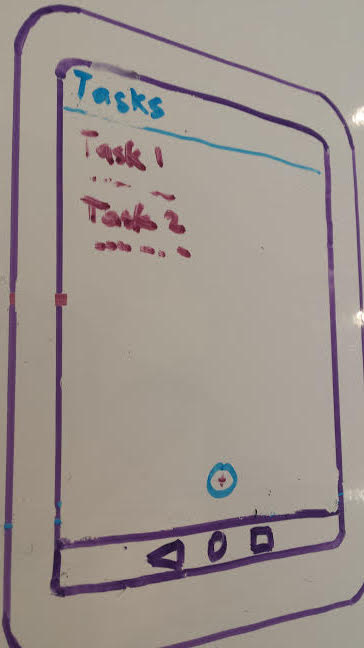 Tasks
Task 1
Task 2
+